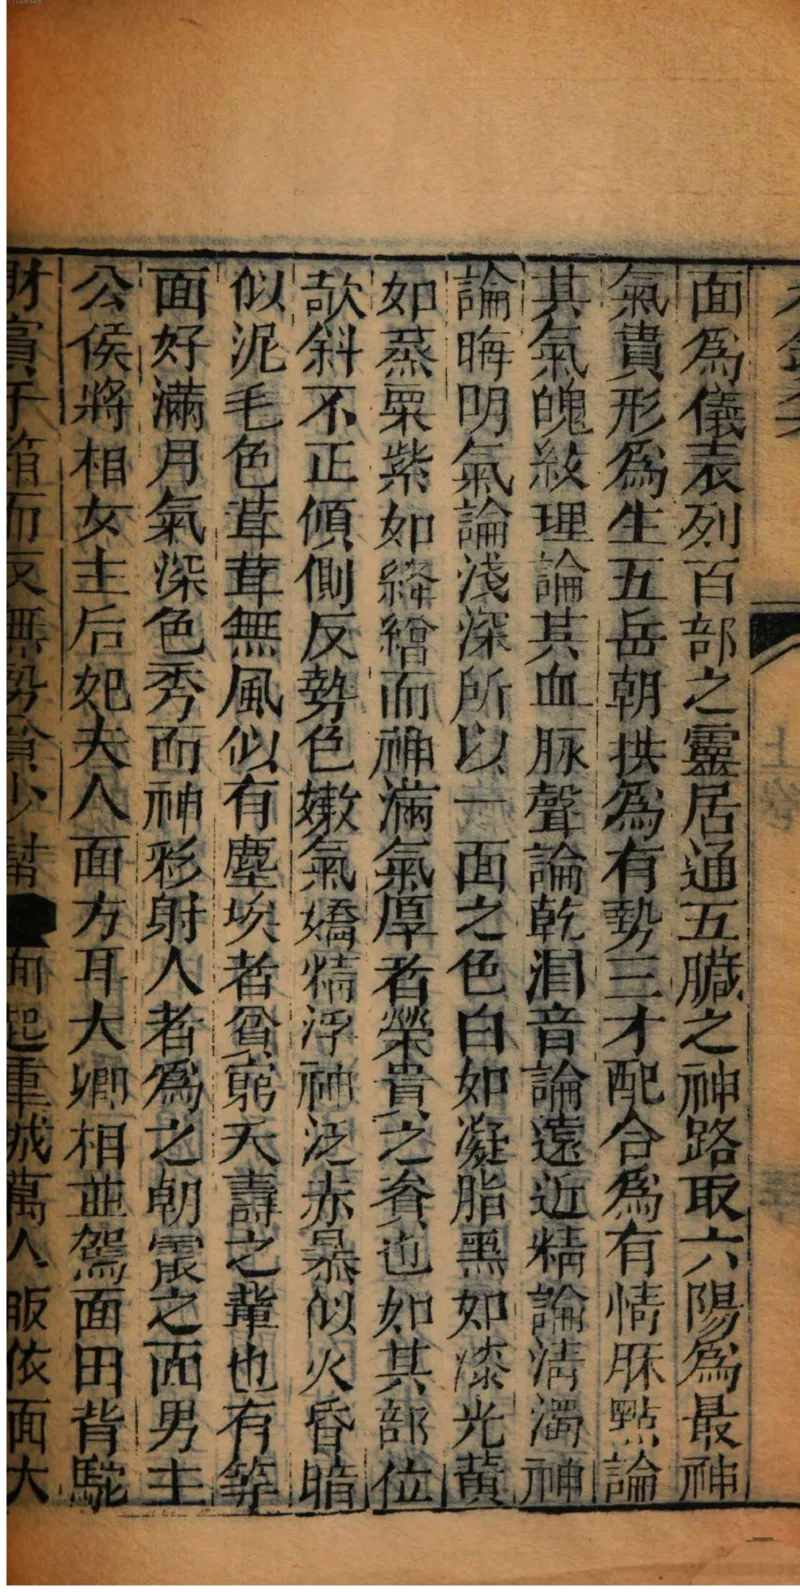 面爲儀表列百部之靈居通五臟之神路取六陽爲最神
氣貴形爲生五岳朝拱爲有勢三才配合爲有情脉㸃論
其氣魄紋理論其血脉聲論乾淚音論遠近精論清濁神
論晦明氣論淺深所以一面之色白如凝脂黑如漆光黃
如蒸栗紫如絳繒而神滿氣厚者榮貴之資也如其部位
欹斜不正傾側反勢色嫩氣嬌精浮神泛赤暴似火昏暗
似泥毛色茸茸無風似有塵埃者貧窮夭壽之輩也有等
面好滿月氣深色秀而神彩射人者爲之朝霞之面男主
公侯將相女主后妃夫人面方耳大卿相並駕面田背駝
財實千箱而反無勢貧少
面起重城萬人皈依面大